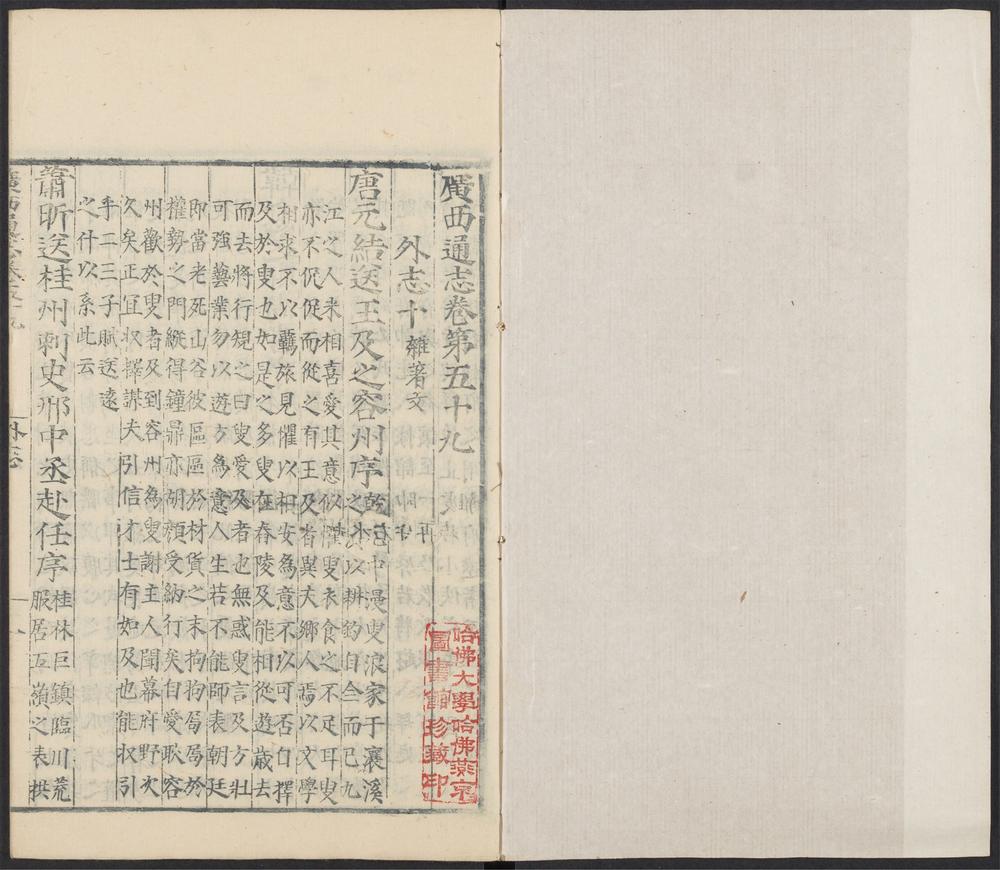 廣西通志卷第五十九
外志十 雜著文
唐元結送王及之容州序
乾元中漫叟浪家于瀼溪
之濵以耕釣自全而已九
江之人来相喜愛其意似懼叟衣食之不足耳叟
亦不促促而從之有王及者異夫鄉人焉以文學
相求不以羈旅見懼以相安為意不以可否自擇
及於叟也如是之多叟在舂陵及能相從遊歲去
而去將行規之曰叟愛及者也無惑叟言及方壯
可強藝業勿以遊方為意人生若不能師表朝廷
即當老死山谷彼區區於材貨之末拘拘局局於
權勢之門縱得鐘鼎亦胡顏受納行矣自愛耿容
州歡於叟者及到容州為叟謝主人聞幕府野次
久矣正宜収擇謀夫引信才士有如及也能収引
乎二三子賦送遠
之什以系此云
蕭昕送桂州刺史邢中丞赴任序
桂林巨鎮臨川荒
服居五嶺之表拱
外志
一
哈佛大學哈佛燕京
圖書館珍藏印